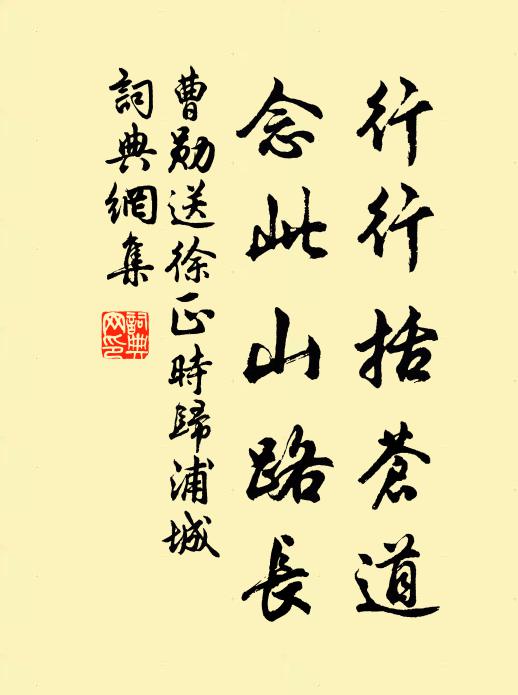 行行括蒼道
念此山路長
曹勛送徐正時歸浦城
詞典網集
詞典网印